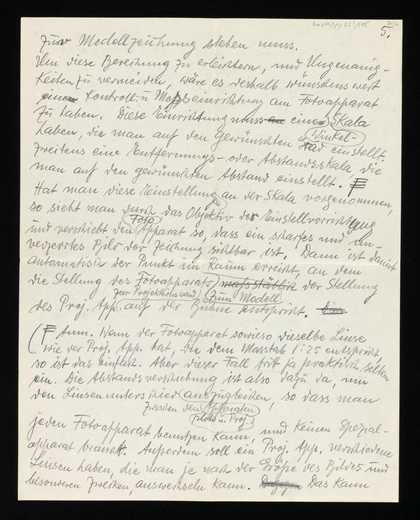 5.
Zur Modellzeichnung stehen muss.
Um diese Berechnung zu erleichtern, und Ungenauig-
keiten zu vermeiden, wäre es deshalb wünschenswert
eine Kontroll- u Messeinrichtung am Fotoapparat
zu haben. Diese Einrichtung muss eine Skala
haben, die man auf den gewünschten Winkel-
grad einstellt.
Zweitens eine Entfernungs- oder Abstandsskala, die
man auf den gewünschten Abstand einstellt. F
Hat man diese Einstellung an der Skala vorgenommen,
so sieht man durch das Objektiv der Einstellvorrichtung
und verschiebt den Foto Apparat so, dass ein scharfes und un-
verzerrtes Bild der Zeichnung sichtbar ist. Dann ist damit
automatisch der Punkt im Raum erreicht, an dem
die Stellung des Fotoapparats maßstäblich der Stellung
zum Modell
des Proj. App. auf der Bühne entspricht.
(F Anm. Wenn der Fotoapparat sowieso dieselbe Linse
wie der Proj. App. hat, die dem Masstab 1:25 entspricht,
so ist das einfach. Aber dieser Fall tritt ja praktisch selten
ein. Die Abstandsvorrichtung ist also dazu da, um
den Linsenunterschied auszugleichen, so dass man
zwischen den Apparaten
(Foto u. Proj.)
jeden Fotoapparat benutzen kann, und keinen Spezial-
apparat braucht. Ausserdem soll ein Proj. App. verschiedene
Linsen haben, die man je nach der Grösse des Bildes und
besonderen Zwecken, auswechseln kann. Das kann